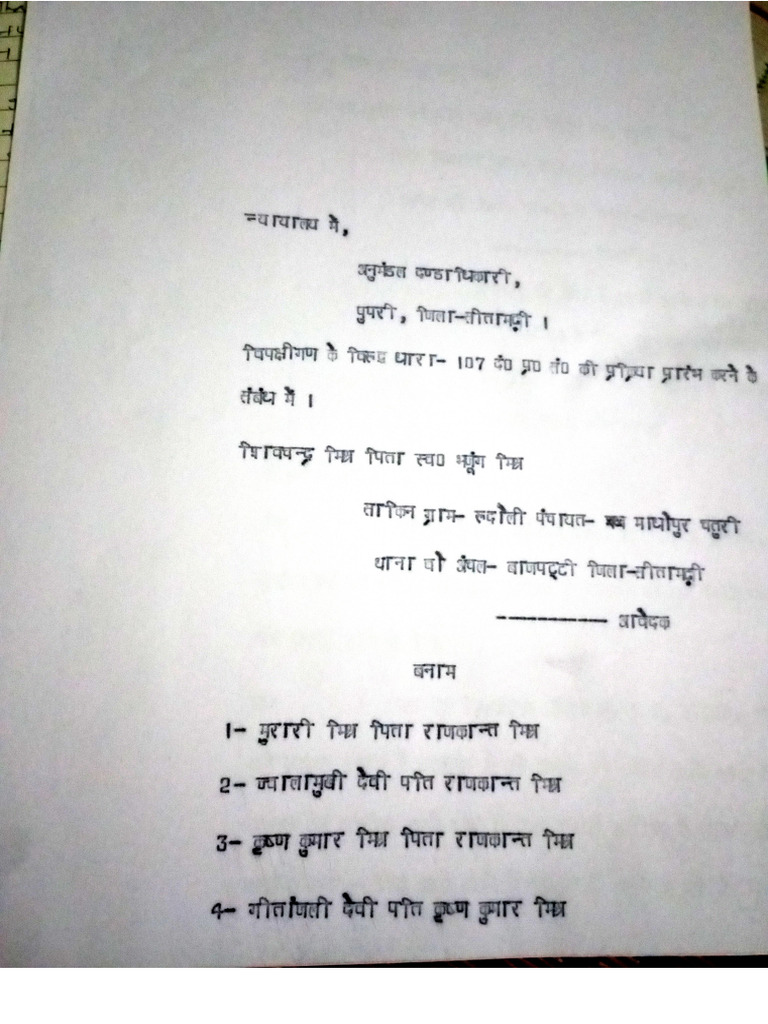 न्यायालय में,
अनुमंडल दण्डाधिकारी,
पुपरी, जिला-सीतामढ़ी ।
विपक्षीगण के विरूद्ध धारा- 107 दं० प्र० सं० की प्रक्रिया प्रारंभ करने के
संबंध में ।
शिवचन्द्र मिश्र पिता स्व० भृंग मिश्र
साकिन ग्राम- रूदौली पंचायत- माधोपुर चतुरी
थाना वो अंचल- बाजपट्टी जिला-सीतामढ़ी
----------- आवेदक
बनाम
1- मुरारी मिश्र पिता राजकान्त मिश्र
2- ज्वालामुखी देवी पति राजकान्त मिश्र
3- कृष्ण कुमार मिश्र पिता राजकान्त मिश्र
4- गीतांजली देवी पति कृष्ण कुमार मिश्र